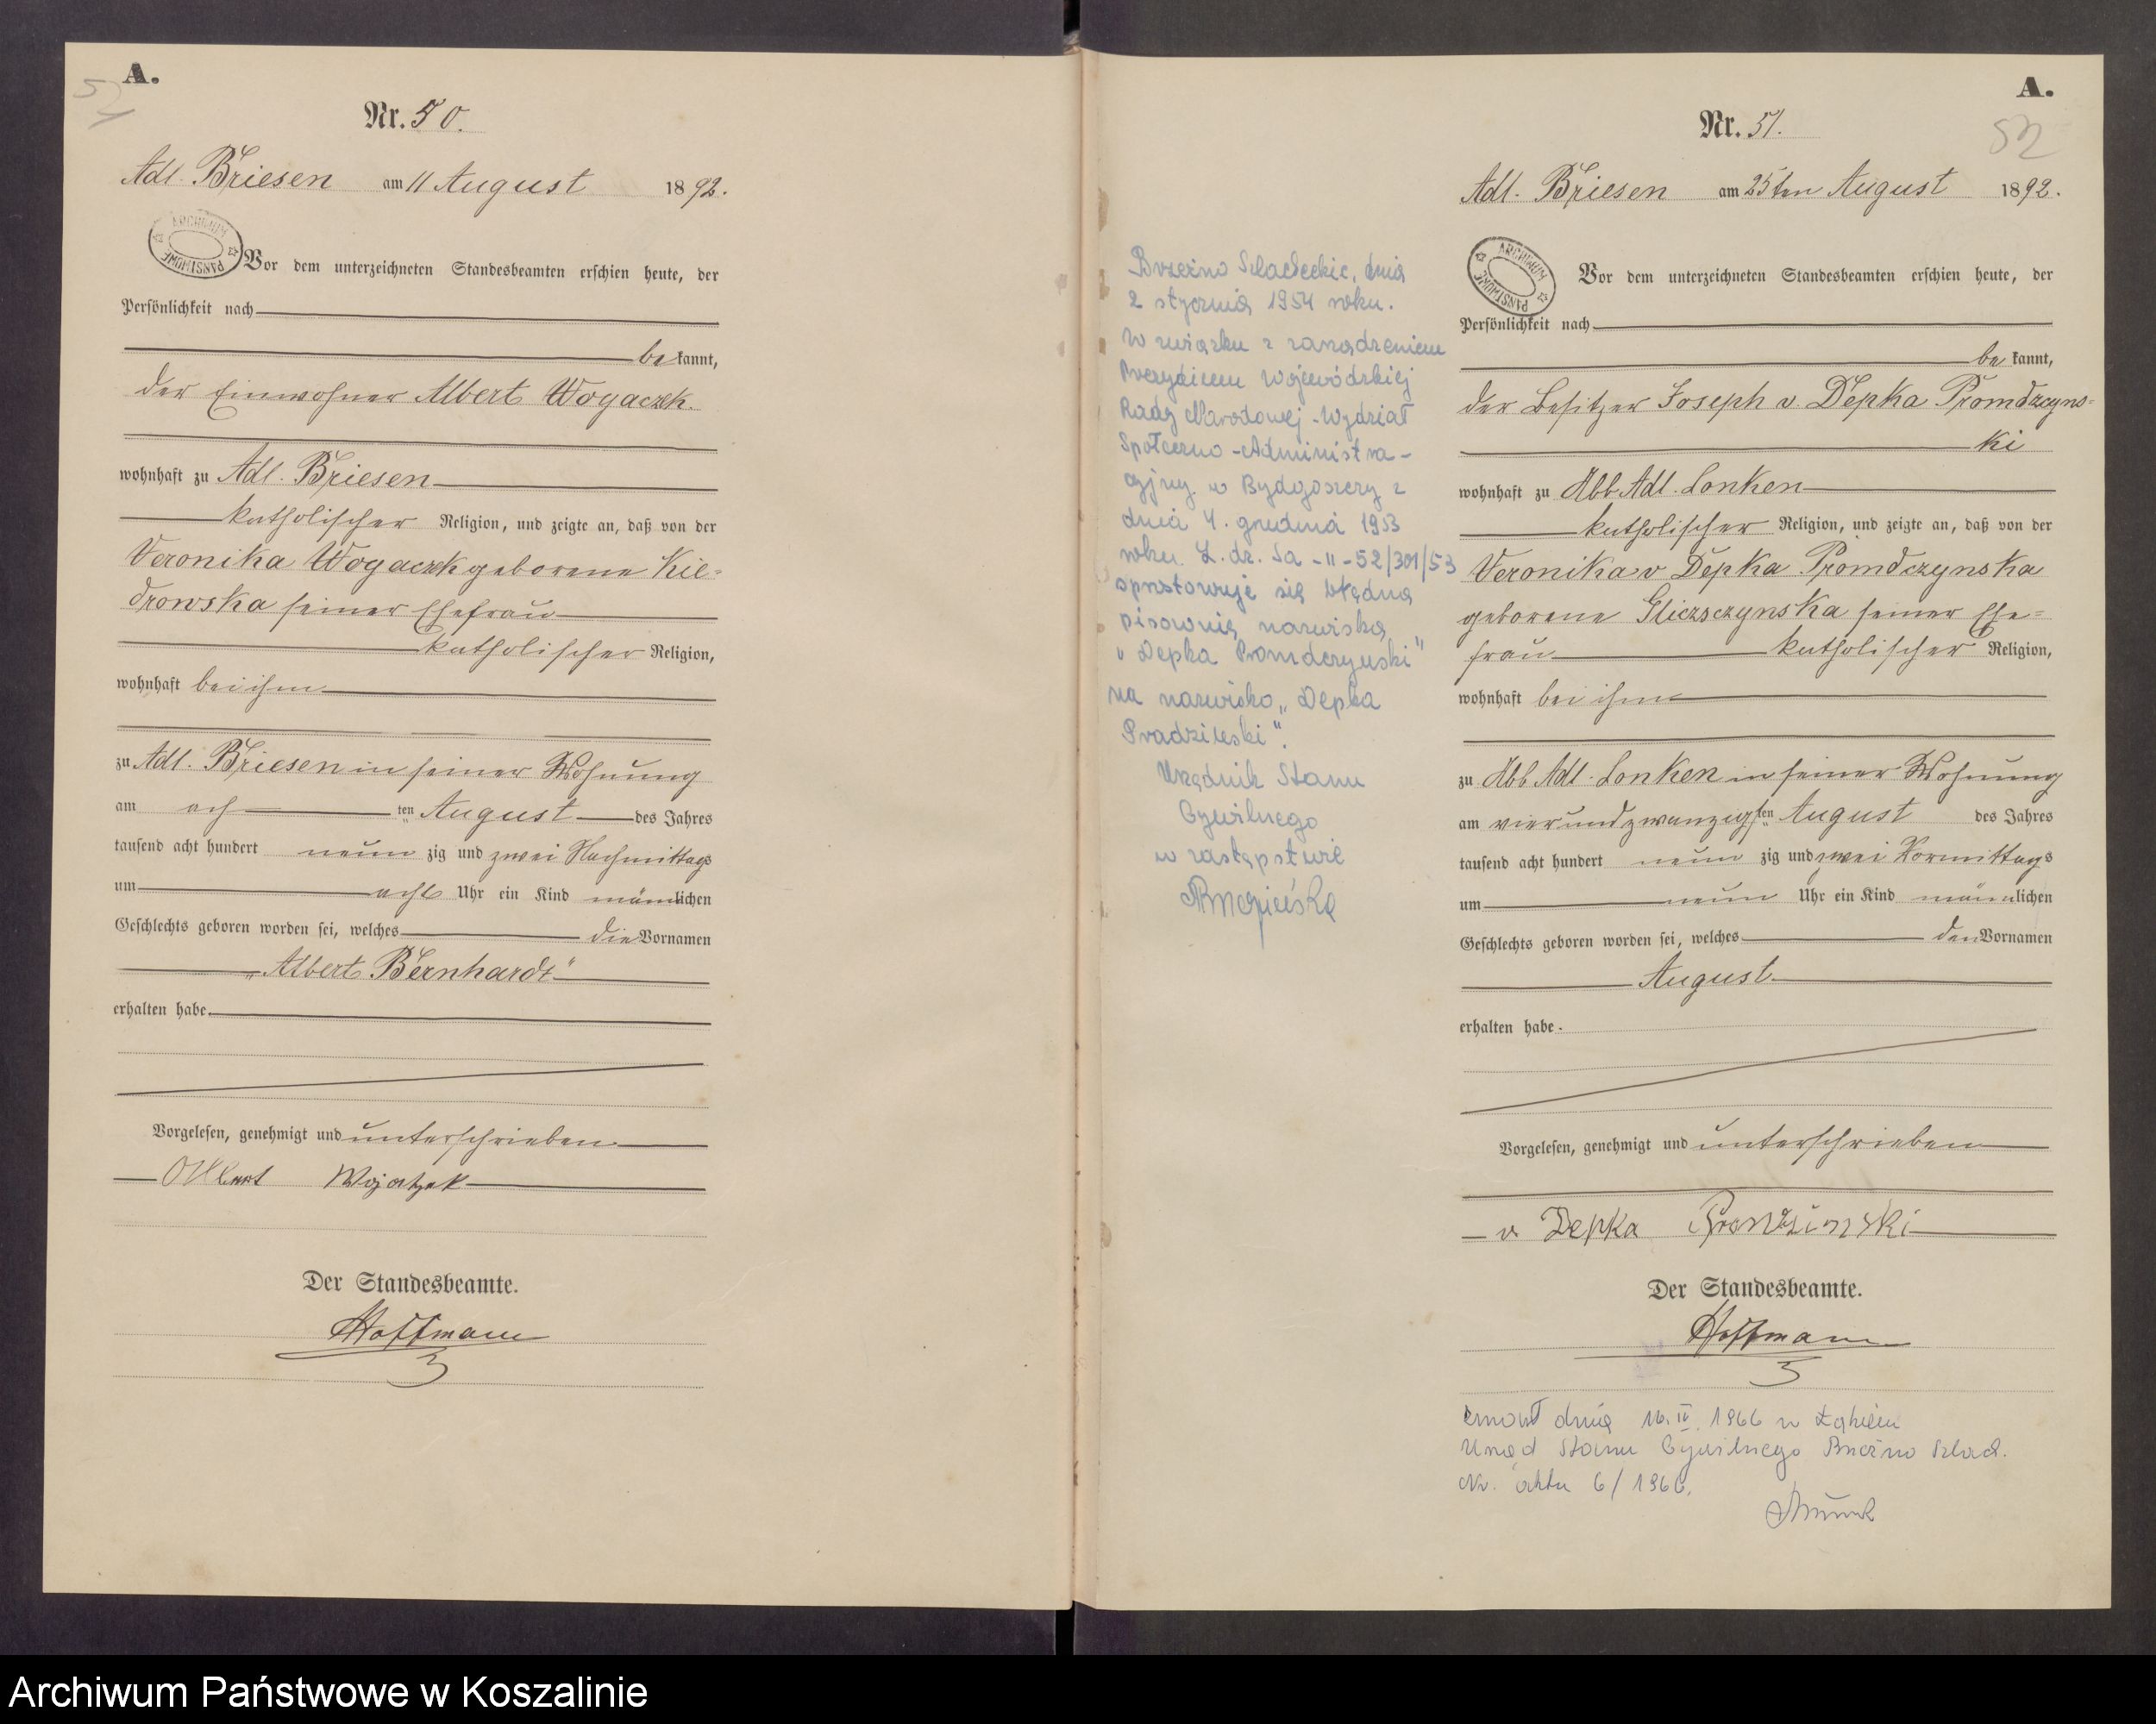 A.
52
Nr. 50.
Adl. Briesen am 11 August 1892.
ARCHIWUM PAŃSTWOWE
Vor dem unterzeichneten Standesbeamten erschien heute, der
Persönlichkeit nach
be kannt,
der Einwohner Albert Wogaczk.
wohnhaft zu Adl. Briesen
katholischer Religion, und zeigte an, daß von der
Veronika Wogaczk geborene Kie-
drowska seiner Ehefrau
katholischer Religion,
wohnhaft bei ihm
zu Adl. Briesen in seiner Wohnung
am ach ten August des Jahres
tausend acht hundert neun zig und zwei Nachmittags
um acht Uhr ein Kind männlichen
Geschlechts geboren worden sei, welches die Vornamen
„Albert Bernhardt"
erhalten habe.
Vorgelesen, genehmigt und unterschrieben
Albert Wojatzek
Der Standesbeamte.
Hoffmann
A.
52
Nr. 51.
Adl. Briesen am 25ten August 1892.
ARCHIWUM PAŃSTWOWE
Vor dem unterzeichneten Standesbeamten erschien heute, der
Persönlichkeit nach
be kannt,
der Besitzer Joseph v. Depka Promdzcyns-
ki
wohnhaft zu Abb. Adl. Lonken
katholischer Religion, und zeigte an, daß von der
Veronika v Depka Promdczynska
geborene Gliczsczynska seiner Ehe-
frau katholischer Religion,
wohnhaft bei ihm
zu Abb. Adl. Lonken in seiner Wohnung
am vierundzwanzigsten August des Jahres
tausend acht hundert neun zig und zwei Vormittags
um neun Uhr ein Kind männlichen
Geschlechts geboren worden sei, welches den Vornamen
August
erhalten habe.
Vorgelesen, genehmigt und unterschrieben
v. Depka Prondzinski
Der Standesbeamte.
Hoffmann
Brzeźno Szlacheckie, dnia
2 stycznia 1954 roku.
W związku z zarządzeniem
Prezydium Wojewódzkiej
Rady Narodowej - Wydział
Społeczno - Administra-
cyjny w Bydgoszczy z
dnia 4. grudnia 1953
roku L. dz. Sa - II - 52/301/53
sprostowuje się błędną
pisownię nazwiska
"v Depka Promdczynski"
na nazwisko „Depka
Prądziński".
Urzędnik Stanu
Cywilnego
w zastępstwie
zmarł dnia 16. IV. 1966 w Łąkiem
Urząd Stanu Cywilnego Brzeźno Szlach.
Nr. aktu 6/1966.
Archiwum Państwowe w Koszalinie